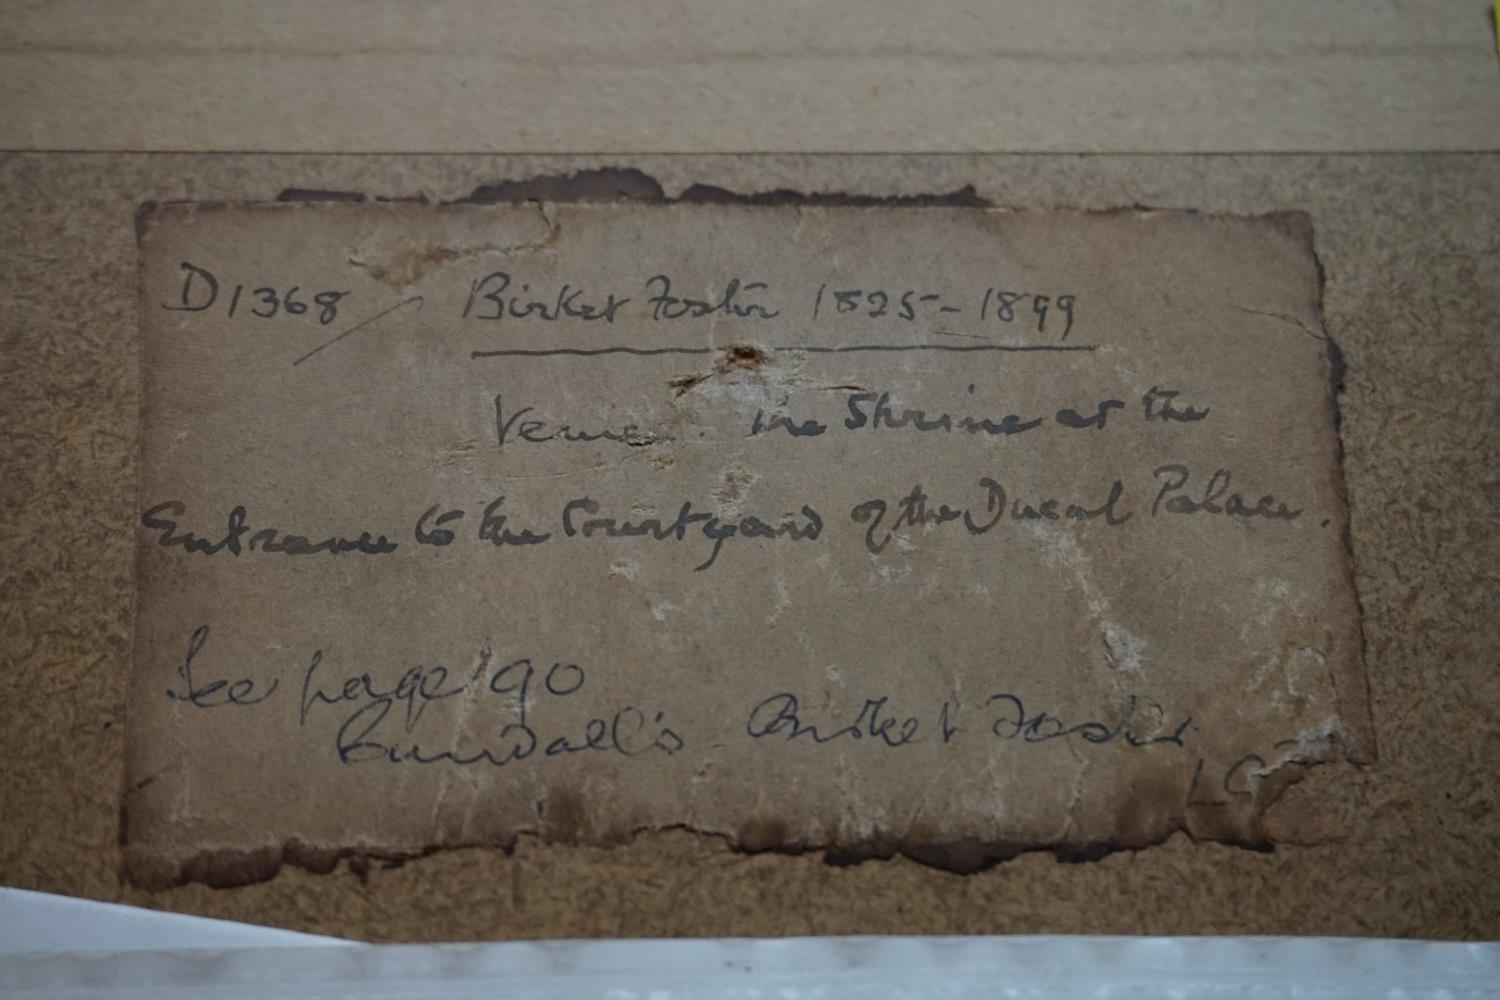 D1368 / Birket Foster 1825-1899
Venice. The Shrine at the
Entrance to the Courtyard of the Ducal Palace.
See page 190
Cundall's Birket Foster
LG